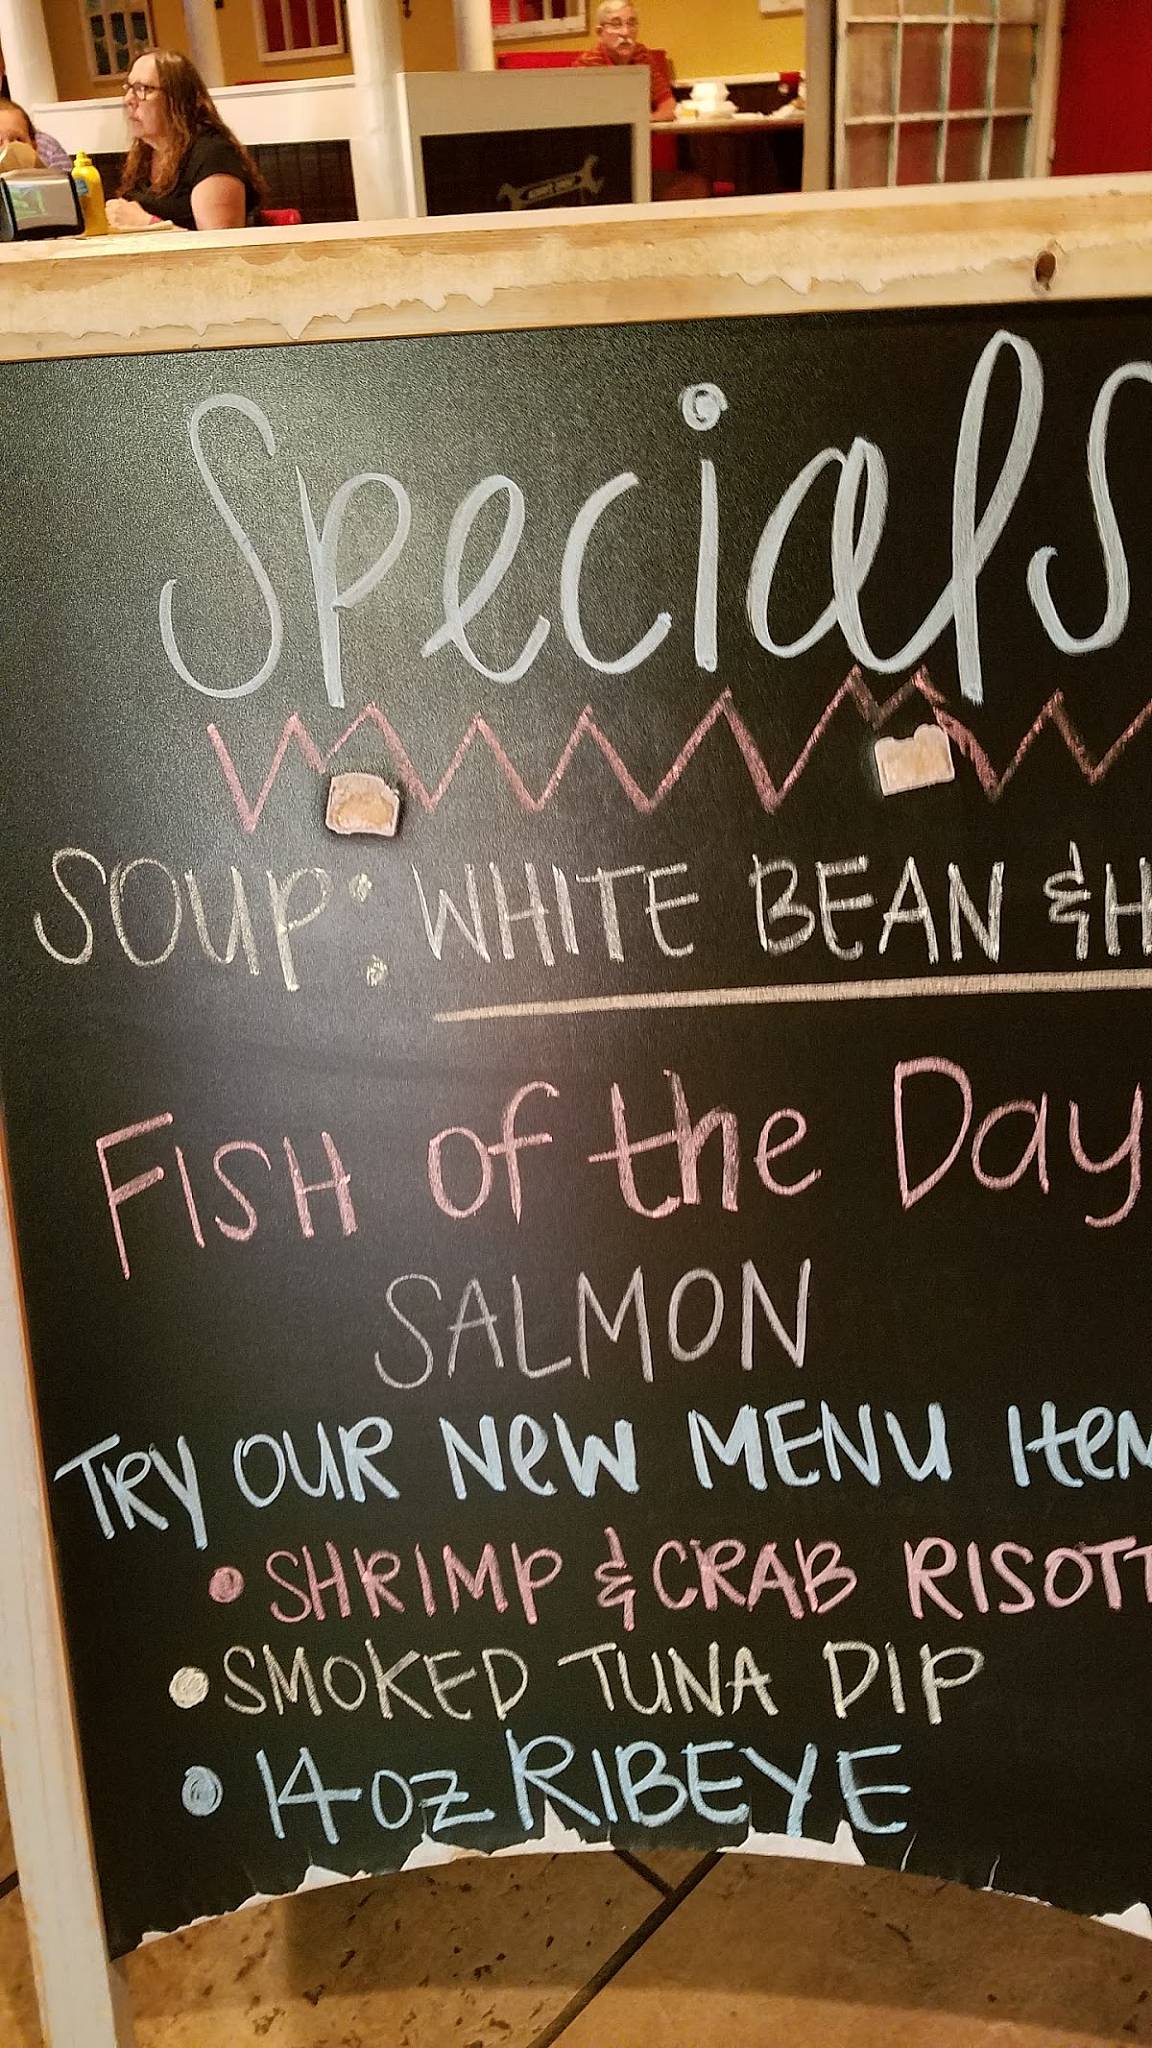 Specials
SOUP: WHITE BEAN & H
FISH of the Day
SALMON
TRY OUR NEW MENU ITEM
• SHRIMP & CRAB RISOTT
• SMOKED TUNA DIP
• 14 oz RIBEYE